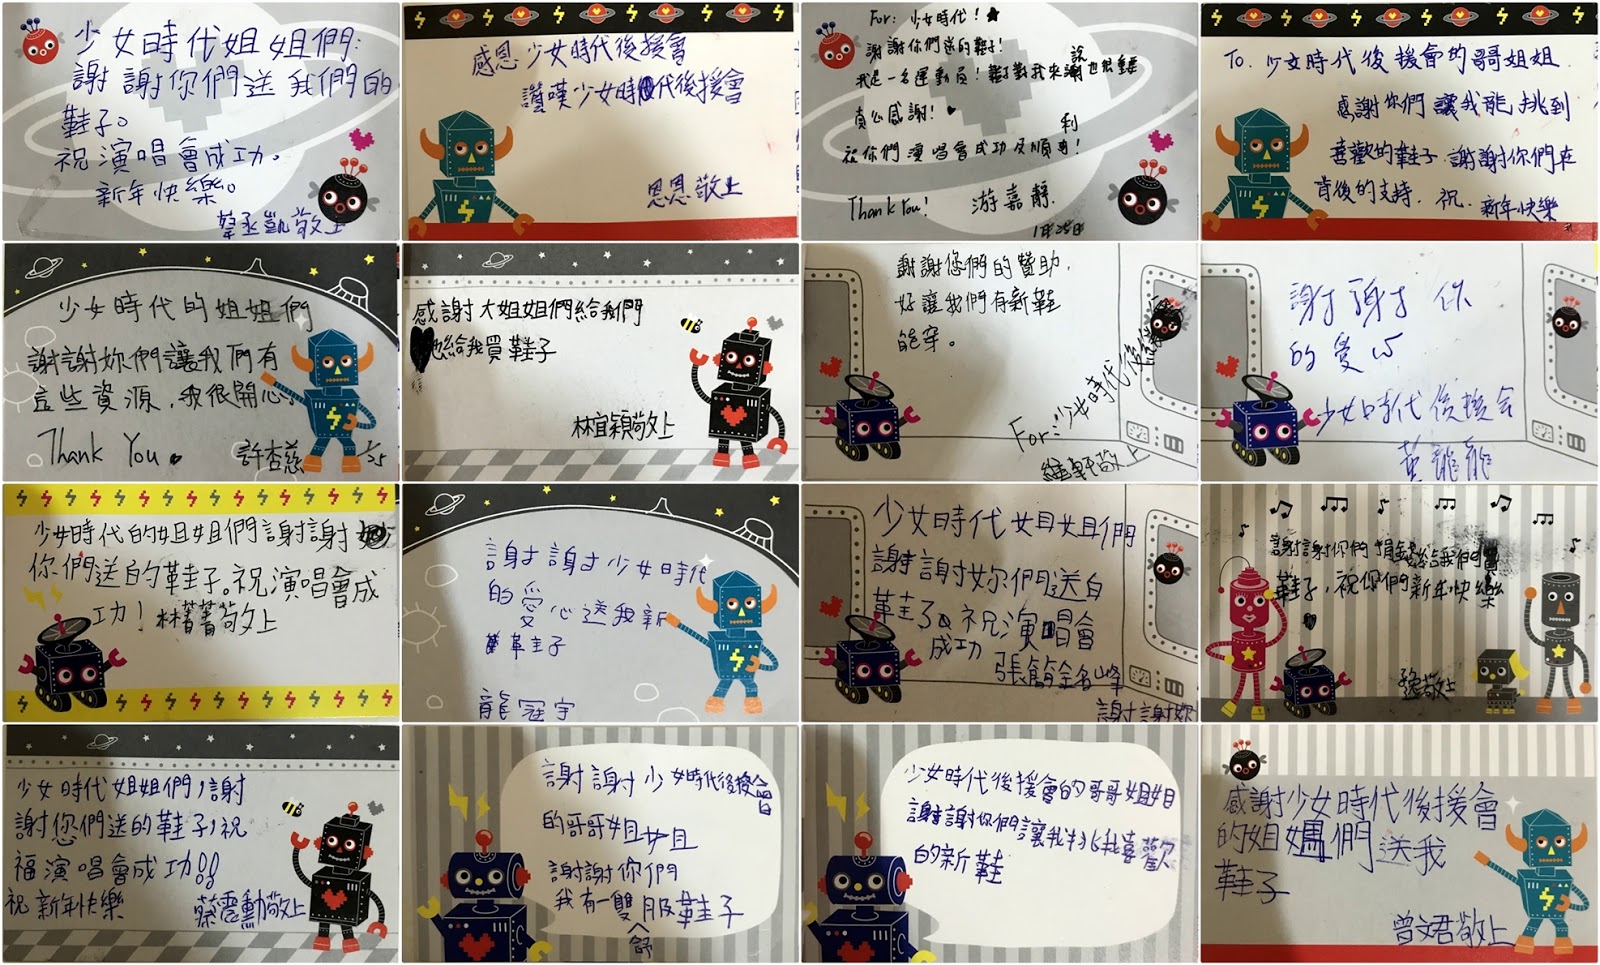 少女時代姐姐們:
謝謝你們送我們的
鞋子。
祝演唱會成功。
新年快樂。
蔡丞凱敬上
感恩少女時代後援會
讚嘆少女時代後援會
恩恩敬上
For: 少女時代!★
謝謝你們送的鞋子!
我是一名運動員!鞋對我來說也很重要
真心感謝!♥
祝你們演唱會成功及順利!
Thank You! 游嘉靜.
1月25日
To. 少女時代後援會的哥姐姐.
感謝你們讓我能挑到
喜歡的鞋子.謝謝你們在
背後的支持.祝.新年快樂
少女時代的姐姐們
謝謝妳們讓我們有
這些資源,我很開心。
Thank You. 許杏慈 1/25
感謝大姐姐們給我們
她給我買鞋子
林宜穎敬上
謝謝您們的贊助,
好讓我們有新鞋
能穿。
For:少女時代後援
敬上
謝謝你
的愛心
少女時代後援会
少女時代的姐姐們謝謝
你們送的鞋子。祝演唱會成
功!林菁菁敬上
謝謝少女時代
的愛心送我新
鞋子
龍冠宇
少女時代姐姐們
謝謝妳們送白
鞋子。祝演唱會
成功 張簡全名峰
謝謝妳
謝謝你們捐錢給我們買
鞋子,祝你們新年快樂
敬上
少女時代姐姐們,謝
謝您們送的鞋子,祝
福演唱會成功!!
祝新年快樂 蔡恩勳敬上
謝謝少女時代後援會
的哥哥姐姐
謝謝你們
我有一雙舒服鞋子
少女時代後援會的哥哥姐姐
謝謝你們讓我挑我喜歡
的新鞋
感謝少女時代後援會
的姐姐們送我
鞋子
曾文君敬上